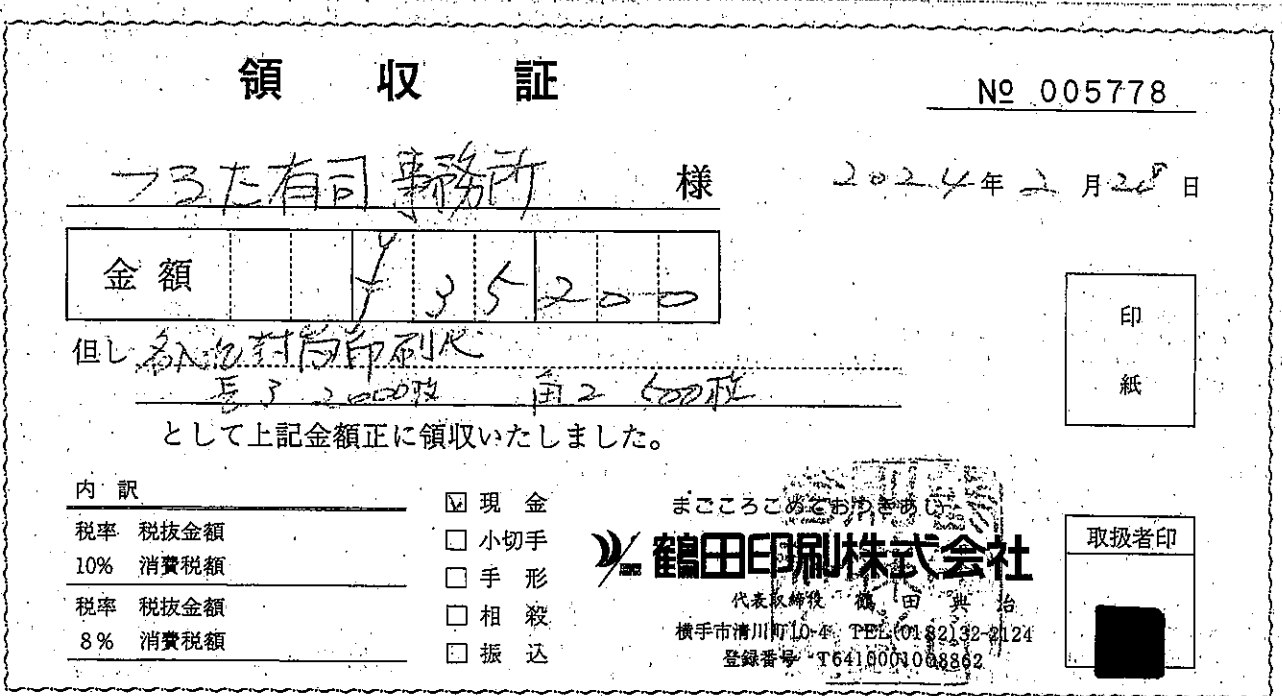 領収証
№ 005778
つるた有司事務所 様
2024年2月28日
金額 ¥35200
但し 名入り封筒印刷代
長3 2000枚 角2 500枚
として上記金額正に領収いたしました。
印紙
内訳
税率 税抜金額
10% 消費税額
税率 税抜金額
8% 消費税額
☑ 現金
☐ 小切手
☐ 手形
☐ 相殺
☐ 振込
まごころこめておつきあい
鶴田印刷株式会社
代表取締役 鶴田典治
横手市清川町10-4 TEL(0182)32-2124
登録番号 T6410001008862
取扱者印